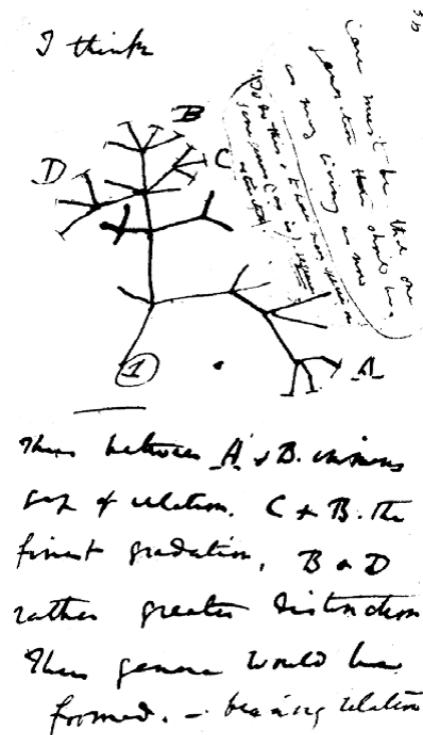 I think
B
D
C
A
1
36
Case must be that one
generation then should have
as many living as now
To do this & to have many species in
same genus (as is) requires
extinction
Thus between A & B. immense
gap of relation. C & B. the
finest gradation, B & D
rather greater distinction
Thus genera would be
formed. — bearing relation